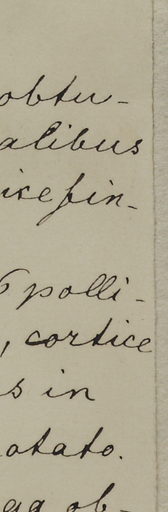 obtu-
alibus
ice fin-
6 polli-
, cortice
s in
otato.
ga ob-